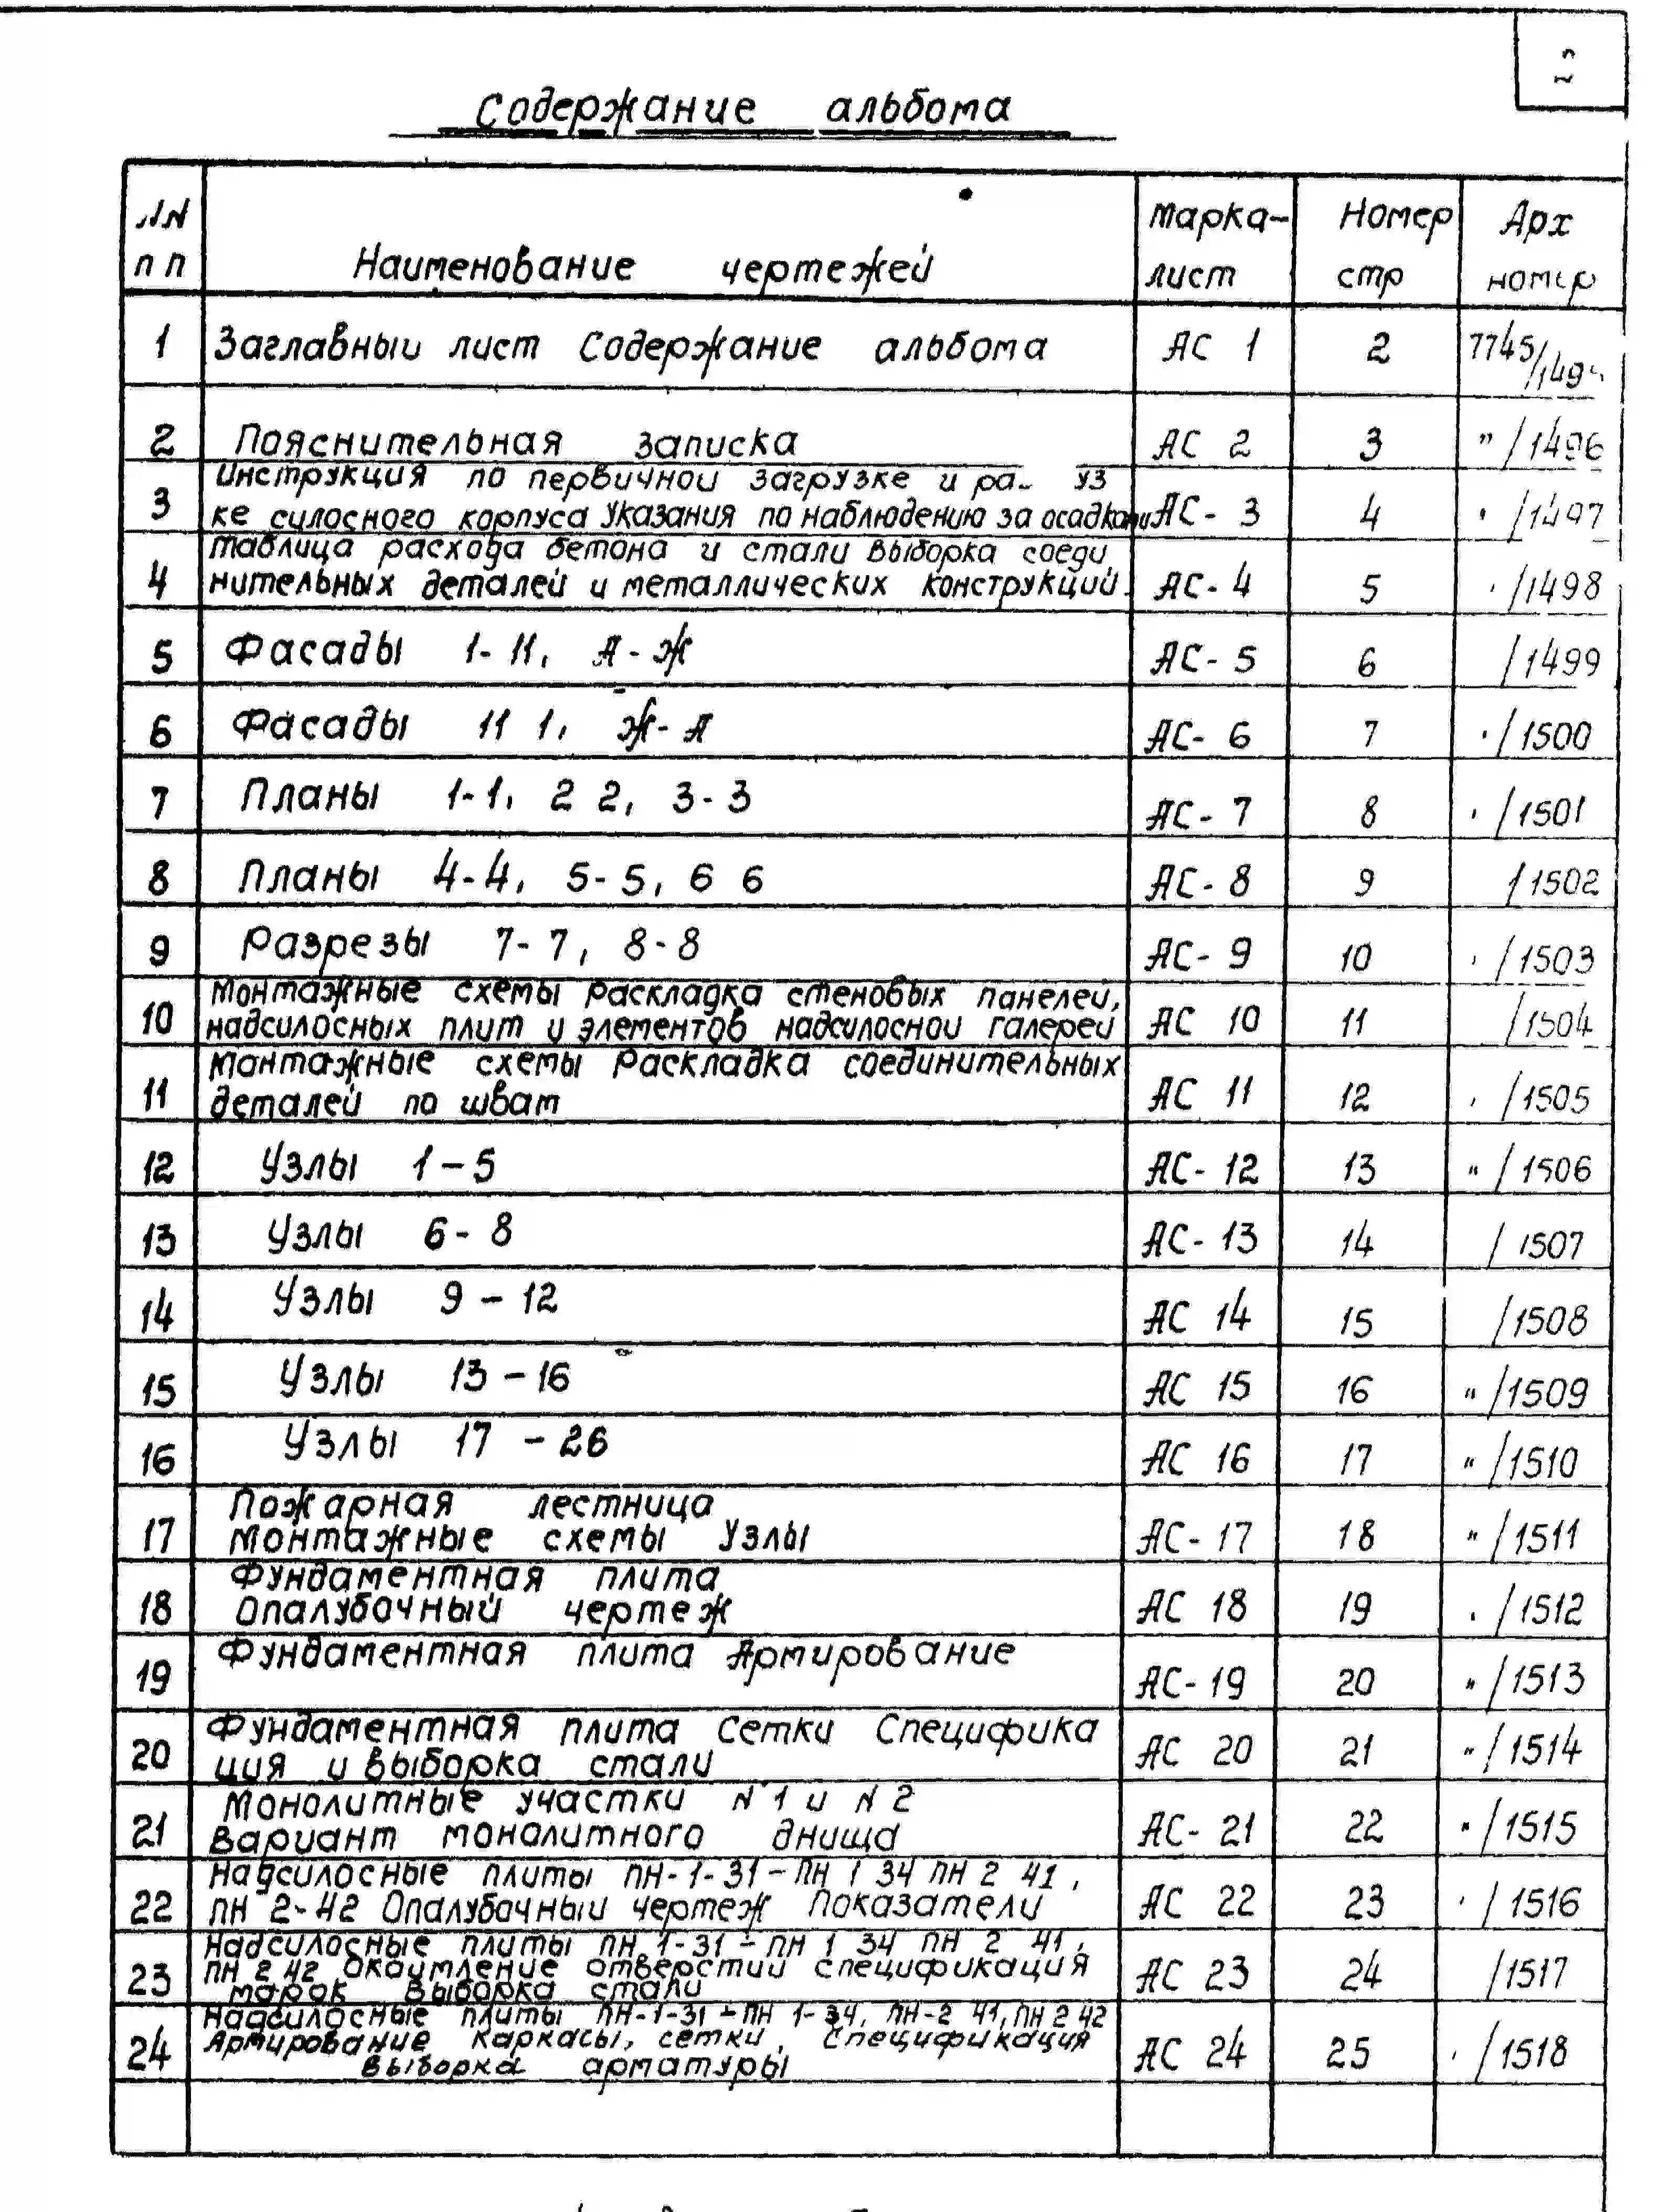 Содержание альбома
NN
пп
Наименование чертежей
Марка-
лист
Номер
стр
Арх
номер
1 Заглавный лист Содержание альбома АС 1 2 7745/
2 Пояснительная записка АС 2 3 " /1496
3 Инструкция по первичной загрузке и
ке силосного корпуса Указания по наблюдению за осадками АС-3 4 /1497
4 Таблица расхода бетона и стали Выборка соеди
нительных деталей и металлических конструкций. АС-4 5 /1498
5 Фасады 1-11, А-Ж АС-5 6 /1499
6 Фасады 11 1, Ж-А АС-6 7 /1500
7 Планы 1-1, 2 2, 3-3 АС-7 8 /1501
8 Планы 4-4, 5-5, 6 6 АС-8 9 /1502
9 Разрезы 7-7, 8-8 АС-9 10 /1503
10 Монтажные схемы Раскладка стеновых панелей,
надсилосных плит и элементов надсилосной галереи АС 10 11 /1504
11 Монтажные схемы Раскладка соединительных
деталей по швам АС 11 12 /1505
12 Узлы 1-5 АС-12 13 " /1506
13 Узлы 6-8 АС-13 14 /1507
14 Узлы 9-12 АС 14 15 /1508
15 Узлы 13-16 АС 15 16 " /1509
16 Узлы 17-26 АС 16 17 " /1510
17 Пожарная лестница
Монтажные схемы Узлы АС-17 18 " /1511
18 Фундаментная плита
Опалубочный чертеж АС 18 19 /1512
19 Фундаментная плита Армирование АС-19 20 " /1513
20 Фундаментная плита Сетки Специфика
ция и выборка стали АС 20 21 " /1514
21 Монолитные участки N 1 и N 2
Вариант монолитного днища АС-21 22 " /1515
22 Надсилосные плиты ПН-1-31-ПН 1 34 ПН 2 41,
ПН 2-42 Опалубочный чертеж Показатели АС 22 23 /1516
23 Надсилосные плиты ПН 1-31-ПН 1 34 ПН 2 41,
ПН 2 42 Окаймление отверстий спецификация
марок Выборка стали АС 23 24 /1517
24 Надсилосные плиты ПН-1-31-ПН 1-34, ПН-2 41, ПН 2 42
Армирование Каркасы, сетки, Спецификация
Выборка арматуры АС 24 25 /1518